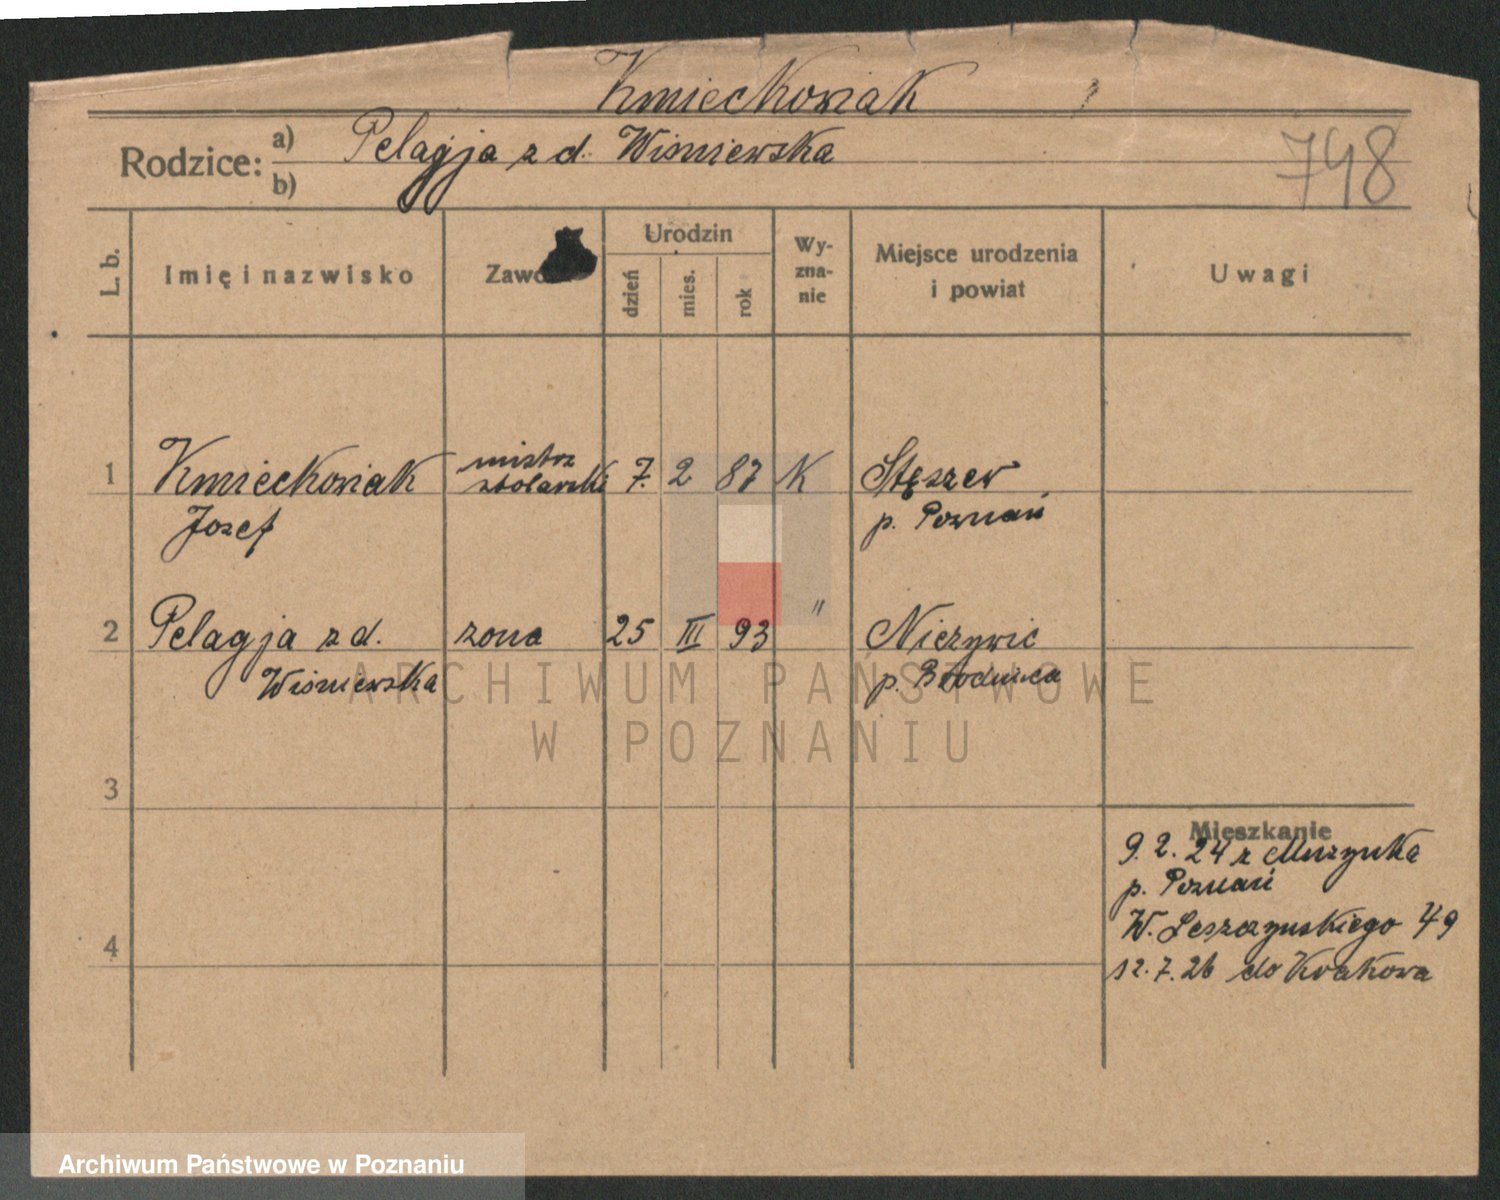 Kmieckowiak
Rodzice: a) Pelagja z d. Wiśniewska
b)
748
L. b.
Imię i nazwisko
Zawód
Urodzin
dzień
mies.
rok
Wy-
zna-
nie
Miejsce urodzenia
i powiat
Uwagi
1 Kmieckowiak mistrz stolarski 7. 2 87 K Stęszew
Jozef p. Poznań
2 Pelagja z d. zona 25 III 93 " Nieżywić
Wiśniewska p. Brodnica
ARCHIWUM PAŃSTWOWE
W POZNANIU
3
Mieszkanie
9. 2. 24 z Muzynka
p. Poznań
W. Leszczynskiego 49
4
12. 7. 26 do Krakowa
Archiwum Państwowe w Poznaniu